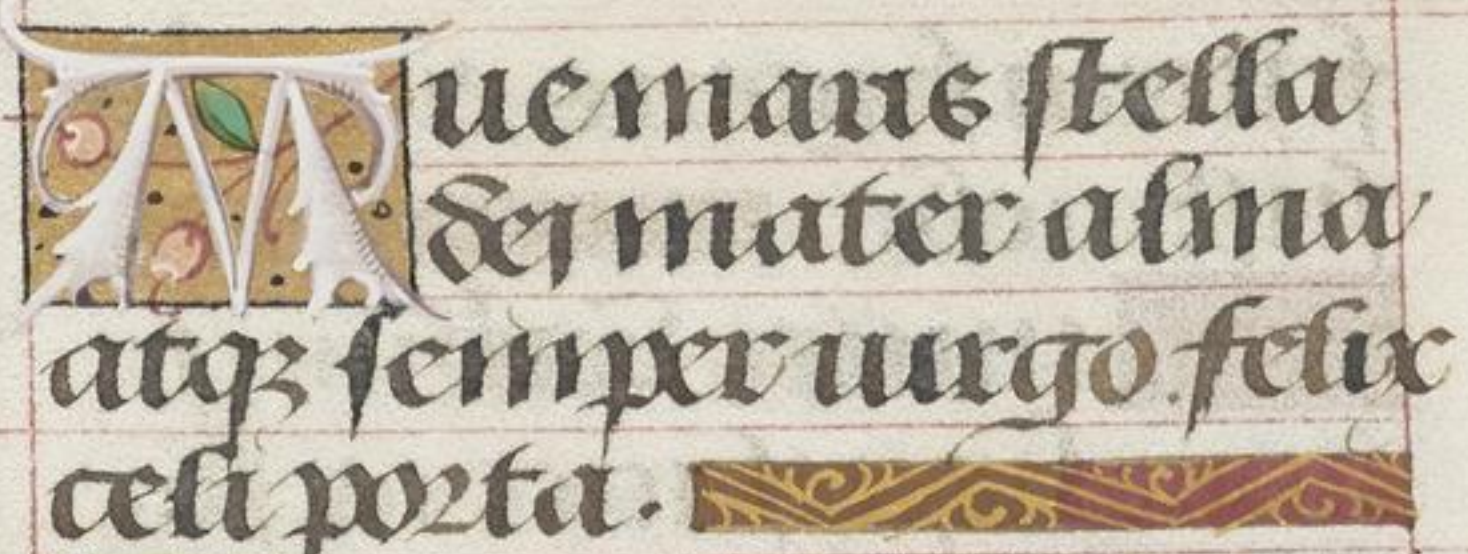 Aue maris stella
dei mater alma
atqꝫ semper uirgo. felix
celi porta.